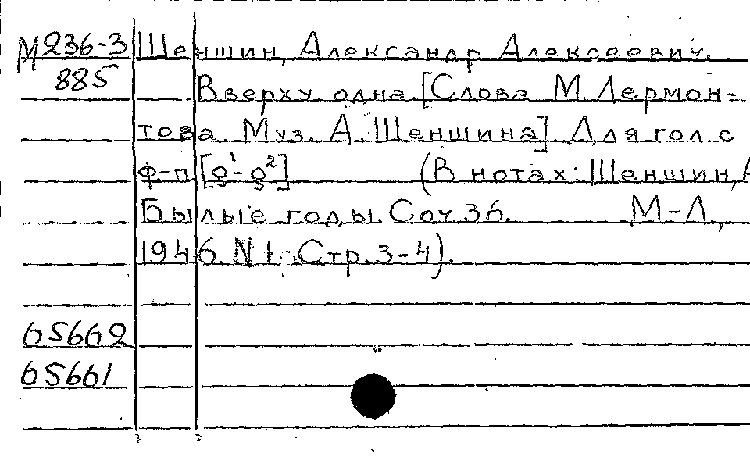 М 236-3 Шеншин, Александр Алексеевич.
885 Вверху одна [Слова М. Лермон-
това. Муз. А. Шеншина] Для гол с
ф-п [о¹-о²] (В нотах: Шеншин, А
Былые годы. Соч 36. М-Л,
1946. N 1. Стр. 3-4).
65662
65661